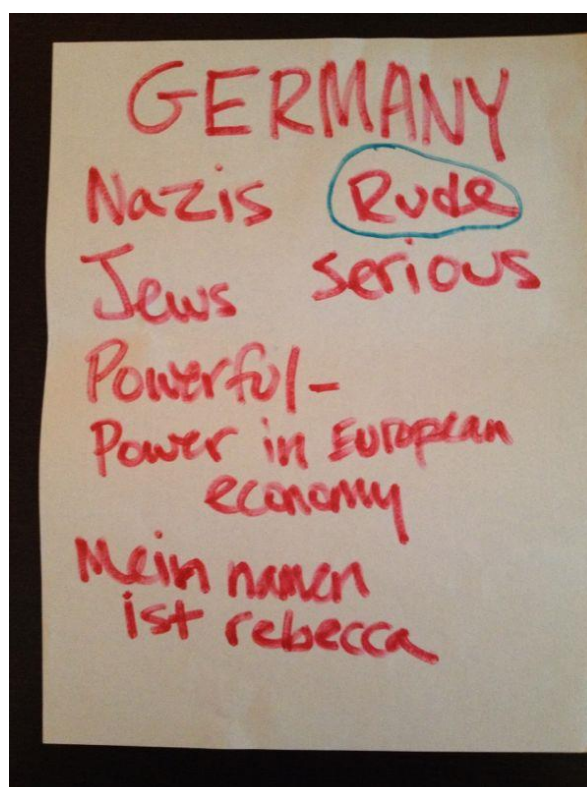 GERMANY
Nazis Rude
Jews serious
Powerful-
Power in European
economy
Mein namen
ist rebecca